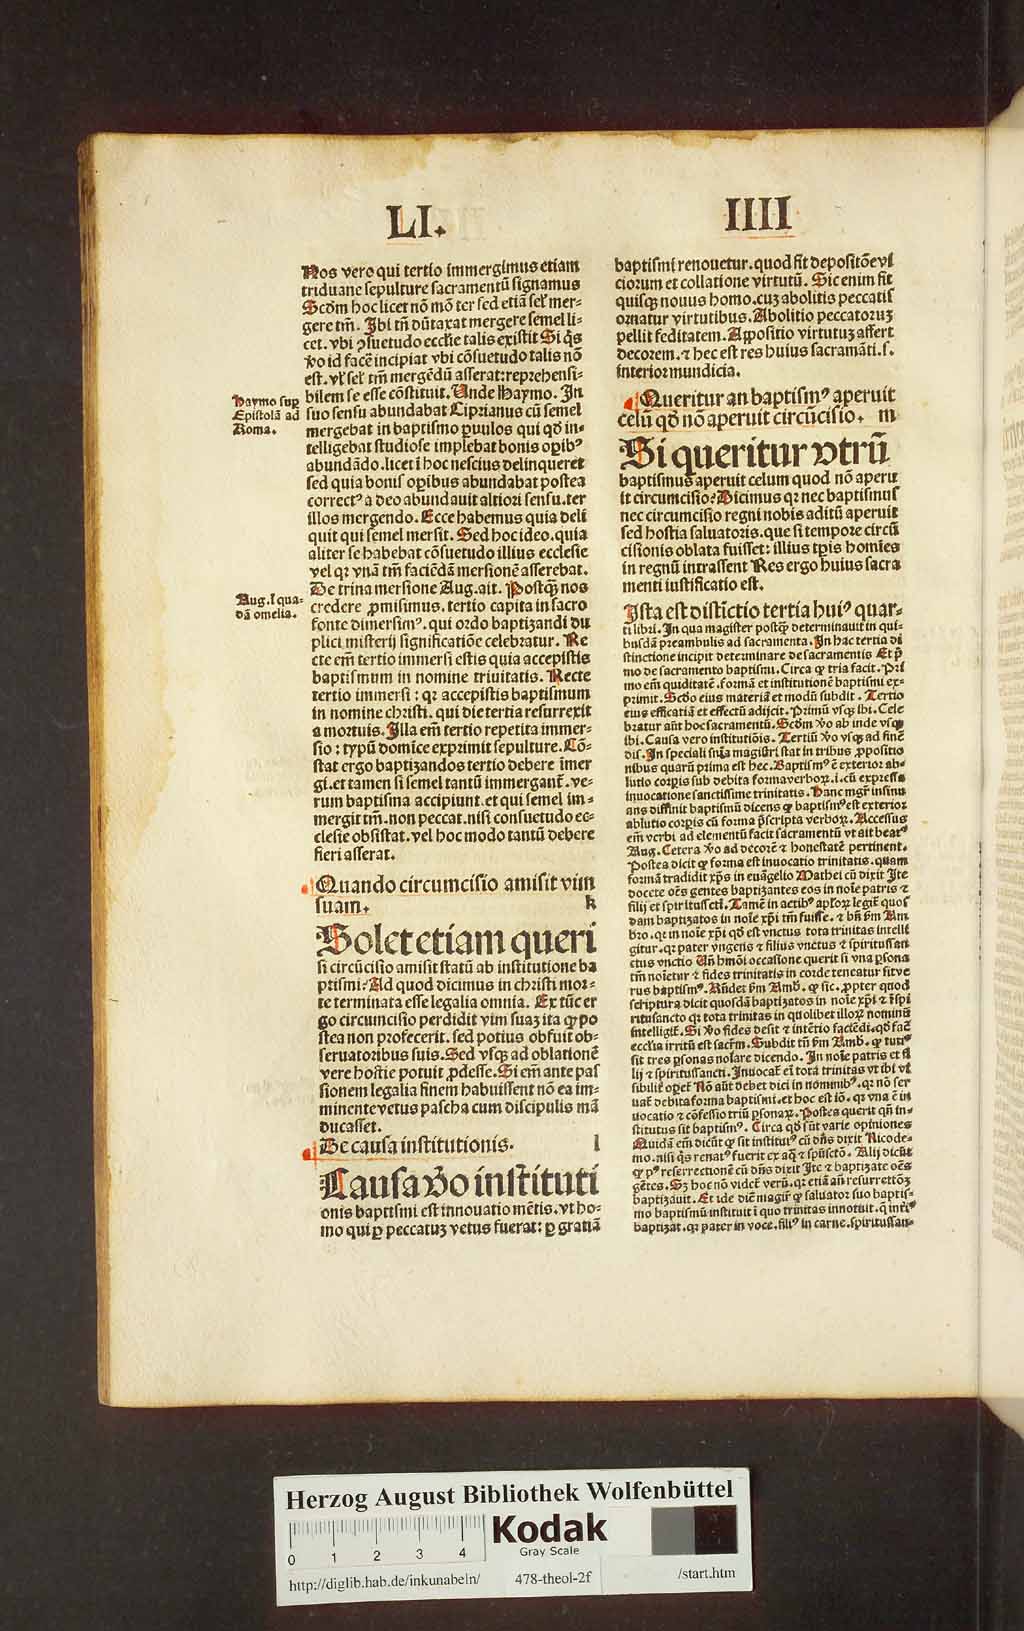 LI.
IIII
Nos vero qui tertio immergimus etiam
triduane sepulture sacramentū signamus
Scdm hoc licet nō mō ter sed etiā sel' mer-
gere tm̄. Ibi tn̄ dūtaxat mergere semel li-
cet. vbi ↄsuetudo ecche talis existit Si q̄s
v̊o id facē incipiat vbi cōsuetudo talis nō
est. vl' sel' tm̄ mergēdū asserat: reprehensi-
bilem se esse cōstituit. Unde Haymo. In
suo sensu abundabat Ciprianus cū semel
mergebat in baptismo ꝑuulos qui qd̄ in-
telligebat studiose implebat bonis oꝑibꝰ
abundādo. licet ī hoc nescius delinqueret
sed quia bonis oꝑibus abundabat postea
correctꝰ a deo abundauit altiori sensu. ter
illos mergendo. Ecce habemus quia deli
quit qui semel mersit. Sed hoc ideo. quia
aliter se habebat cōsuetudo illius ecclesie
vel qꝛ vnā tm̄ faciēdā mersionē asserebat.
De trina mersione Aug. ait. Postq̄ȝ nos
credere ꝓmisimus. tertio capita in sacro
fonte dimersimꝰ. qui ordo baptizandi du
plici misterij significatiōe celebratur. Re
cte em̄ tertio immersi estis quia accepistis
baptismum in nomine trinitatis. Recte
tertio immersi : qꝛ accepistis baptismum
in nomine christi. qui die tertia resurrexit
a mortuis. Illa em̄ tertio repetita immer-
sio : typū domīce exprimit sepulture. Cō-
stat ergo baptizandos tertio debere īmer
gi. et tamen si semel tantū immergant̄. ve-
rum baptisma accipiunt. et qui semel im-
mergit tm̄. non peccat. nisi consuetudo ec-
clesie obsistat. vel hoc modo tantū debere
fieri asserat.
Haymo sup
Epistolā ad
Roma.
Aug. ī qua-
dā omelia.
Quando circumcisio amisit vim
suam. k
Solet etiam queri
si circūcisio amisit statū ab institutione ba
ptismi? Ad quod dicimus in christi mor-
te terminata esse legalia omnia. Ex tūc er
go circumcisio perdidit vim suaȝ ita ꝙ po
stea non profecerit. sed potius obfuit ob-
seruatoribus suis. Sed vsqȝ ad oblationē
vere hostie potuit ꝓdesse. Si em̄ ante pas
sionem legalia finem habuissent nō ea im-
minente vetus pascha cum discipulis mā
ducasset.
De causa institutionis. l
Causa v̊o instituti
onis baptismi est innouatio mētis. vt ho-
mo qui ꝑ peccatuȝ vetus fuerat: ꝑ gratiā
baptismi renouetur. quod fit depositōe vi
ciorum et collatione virtutū. Sic enim fit
quisqȝ nouus homo. cuȝ abolitis peccatis
ornatur virtutibus. Abolitio peccatoruȝ
pellit feditatem. Appositio virtutuȝ affert
decorem. ⁊ hec est res huius sacramāti. s.
interior mundicia.
Queritur an baptismꝰ aperuit
celū qd̄ nō aperuit circūcisio. m
Si queritur vtrū
baptismus aperuit celum quod nō aperu
it circumcisio? Dicimus qꝛ nec baptismus
nec circumcisio regni nobis aditū aperuit
sed hostia saluatoris. que si tempore circū
cisionis oblata fuisset: illius tp̄is homīes
in regnū intrassent Res ergo huius sacra
menti iustificatio est.
Ista est distīctio tertia huiꝰ quar-
ti libri. In qua magister postqȝ determinauit in qui-
busdā preambulis ad sacramenta. In hac tertia di
stinctione incipit determinare de sacramentis Et p̄
mo de sacramento baptismi. Circa ꝙ tria facit. Pri
mo em̄ quiditatē. formā et institutionē baptismi ex-
primit. Scdo eius materiā et modū subdit. Tertio
eius efficatiā et effectū adijcit. Primū vsqȝ ibi. Cele
bratur aūt hoc sacramentū. Scdm v̊o ab inde vsqȝ
ibi. Causa vero institutiōis. Tertiū v̊o vsqȝ ad finē
dis. In speciali snīa magistri stat in tribus ꝓpositio
nibus quarū prima est hec. Baptismꝰ ē exterior ab-
lutio corpis sub debita forma verboꝝ. i. cū expressa
inuocatione sanctissime trinitatis. Hanc mgr̄ insinu
ans diffinit baptismū dicens ꝙ baptismꝰ est exterior
ablutio corpis cū forma p̄scripta verboꝝ. Accessus
em̄ verbi ad elementū facit sacramentū vt ait beatꝰ
Aug. Cetera v̊o ad decorē ⁊ honestatē pertinent.
Postea dicit ꝙ forma est inuocatio trinitatis. quam
formā tradidit xp̄s in euāgelio Mathei cū dixit Ite
docete oēs gentes baptizantes eos in noīe patris ⁊
filij et spiritussctī. Tamē in actibꝰ aplōꝝ legit̄ quos
dam baptizatos in noīe xp̄i tm̄ fuisse. ⁊ hm̄ bm̄ Am
bro. qꝛ in noīe xp̄i qd̄ est vnctus tota trinitas intelli
gitur. qꝛ pater vngens ⁊ filius vnctus ⁊ spiritussan
ctus vnctio Un̄ hmōi occasione querit si vna ꝑsona
tm̄ noīetur ⁊ fides trinitatis in corde teneatur sit ve
rus baptismꝰ. Rn̄det bm̄ Amb. ꝙ sic. ꝓpter quod
scriptura dicit quosdā baptizatos in noīe xp̄i ⁊ ī spi
ritusancto qꝛ tota trinitas in quolibet illoꝝ nominū
intelligit̄. Si v̊o fides desit ⁊ intētio faciēdi. qd̄ facit
ecclīa irritū est sacrm̄. Subdit tn̄ bm̄ Amb. ꝙ tutiꝰ
sit tres ꝑsonas noīare dicendo. In noīe patris et fi
lij ⁊ spiritussancti. Inuocat̄ em̄ tota trinitas vt ibi vi
sibilit̄ oꝑet̄ Nō aūt debet dici in nominibꝰ. qꝛ nō ser
uat̄ debita forma baptismi. et hoc est iō. qꝛ vna ē in
uocatio ⁊ cōfessio triū ꝑsonaꝝ. Postea querit qn̄ in-
stitutus sit baptismꝰ. Circa qd̄ sūt varie opiniones
Quidā em̄ dicūt ꝙ sit institutꝰ cū dn̄s dixit Nicode-
mo. nisi q̄s renatꝰ fuerit ex aq̄ ⁊ spūsctō. Alij dicūt
ꝙ pꝰ resurrectionē cū dn̄s dixit Ite ⁊ baptizate oēs
gētes. Sȝ hoc nō videt̄ verū. qꝛ etiā an̄ resurrectōȝ
baptizauit. Et ide dicē magr̄ ꝙ saluator suo baptis-
mo baptismū instituit ī quo trinitas innotuit. q̄ interiꝰ
baptizat. qꝛ pater in voce. filiꝰ in carne. spiritussan-
Herzog August Bibliothek Wolfenbüttel
Kodak
Gray Scale
0 1 2 3 4
http://diglib.hab.de/inkunabeln/ 478-theol-2f /start.htm